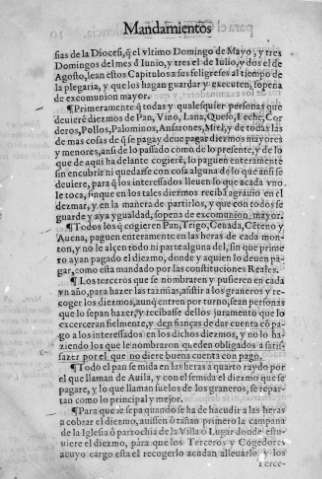 Mandamientos
sias de la Diocesi, q̃ el vltimo Domingo de Mayo, y tres
Domingos del mes d Iunio, y tres el de Iulio, y dos el de
Agosto, lean estos Capitulos a sus feligreses al tiempo de
la plegaria, y que los hagan guardar y executen, sopena
de excomunion mayor.
¶Primeramente q̃ todas y qualesquier personas que
deuierẽ diezmos de Pan, Vino, Lana, Queso, Leche, Cor
deros, Pollos, Palominos, Ansarones, Miel, y de todas las
de mas cosas de q̃ se pagay deue pagar diezmos mayores
y menores, ansi de lo passado como de lo presente, y de lo
que de aqui ha delante cogierẽ, lo paguen enteramente
sin encubrir ni quedarse con cosa alguna de lo que ansi se
deuiere, para q̃ los interessados lleuen lo que acada vno
le toca, sinque en los tales diezmos recibã agrauio en el
dezmar, y en la manera de partirlos, y que con todos se
guarde y aya ygualdad, sopena de excomunion mayor.
¶Todos los q̃ cogieren Pan, Trigo, Ceuada, Cẽteno y
Auena, paguen enteramente en las heras de cada mon-
ton, y no le alçen todo ni parte alguna del, sin que prime
ro ayan pagado el diezmo, donde y aquien lo deuen pa-
gar, como esta mandado por las constituciones Reales.
¶Los terceros que se nombraren y pusieren en cada
vn año, para hazer las tazmias, asistir a los graneros y re-
coger los diezmos, aunq̃ entren por turno, sean personas
que lo sepan hazer, y recibase dellos juramento que lo
exercceran fielmente, y den fianças de dar cuenta cõ pa-
go a los interessados en los dichos diezmos, y no lo ha-
ziendo los que le nombraron queden obligados a satis-
fazer por el que no diere buena cuenta con pago.
¶Todo el pan se mida en las heras a quarto raydo por
el que llaman de Auila, y con el se mida el diezmo que se
pagare, y lo que llaman suelos de los graneros, se repar-
tan como lo principal y mejor.
¶Para que se sepa quando se ha de hacudir a las heras
a cobrar el diezmo, auissen o tañan primero la campana
de la Iglesia o parrochia de la Villa o Lugar donde estu-
uiere el diezmo, para que los Terceros y Cogedores
acuyo cargo esta el recogerlo acudan alleuarlo, y los
terce-